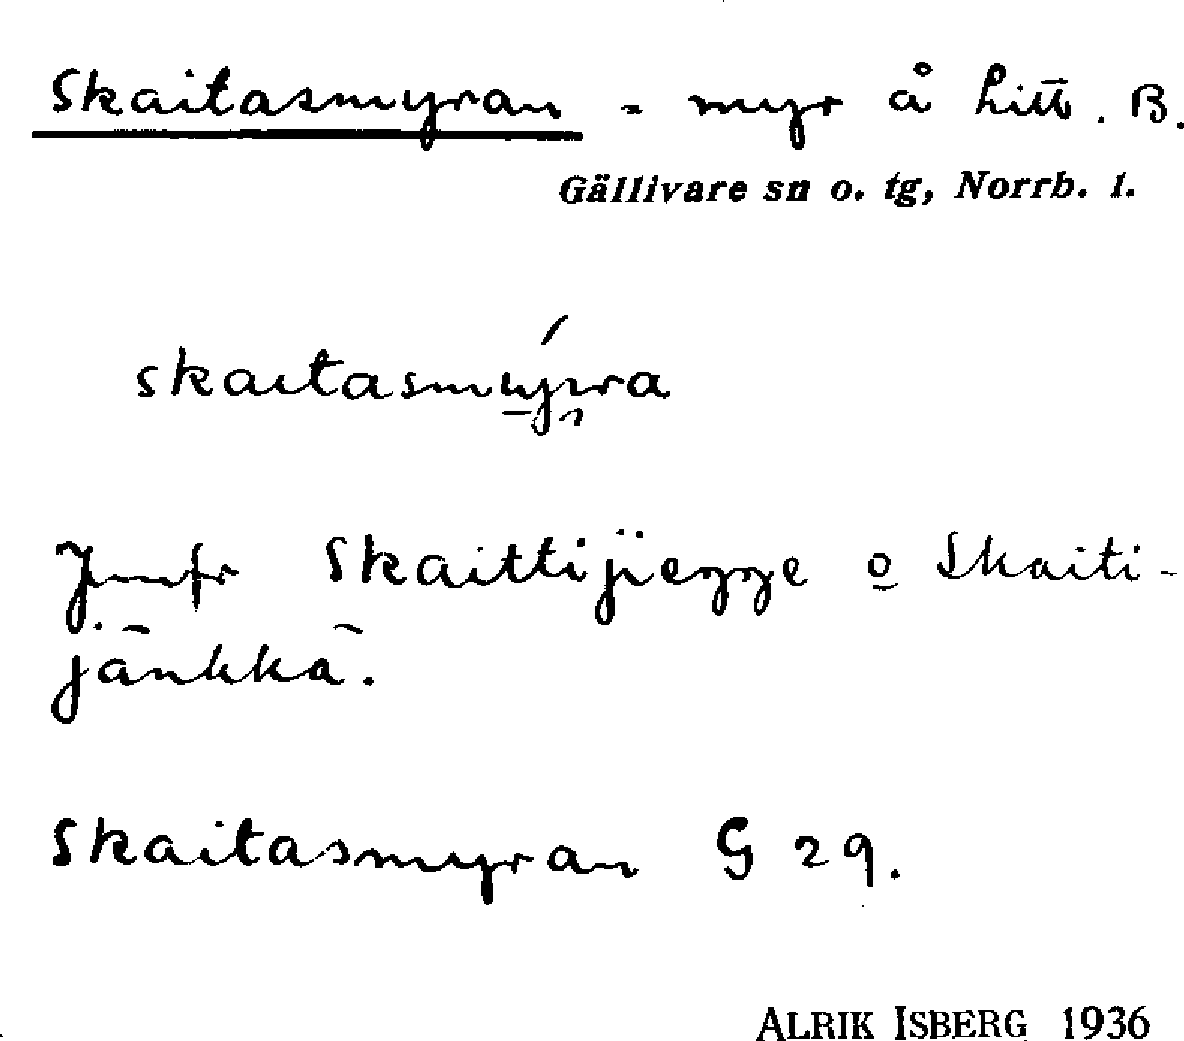 Skaitasmyran - myr å Litt. B.
Gällivare sn o. tg, Norrb. l.
skaitasmýra
Jmfr Skaittijiegge o Skaiti-
jänkkä.
Skaitasmyran G 29.
ALRIK ISBERG 1936